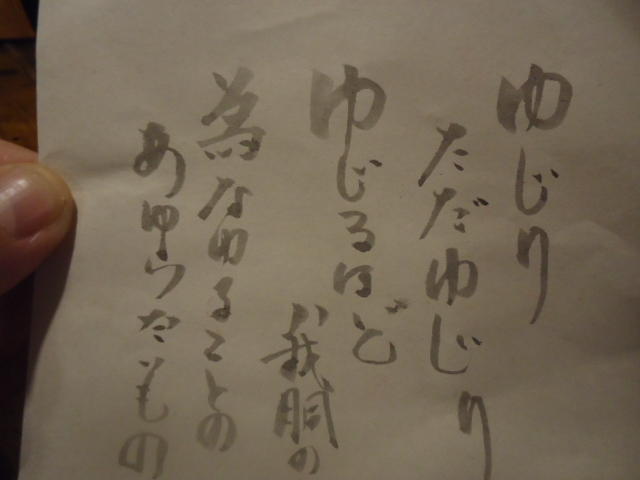 ゆじり
ただゆじり
ゆじるほど
我胴の
為なゆることの
あゆらたもの